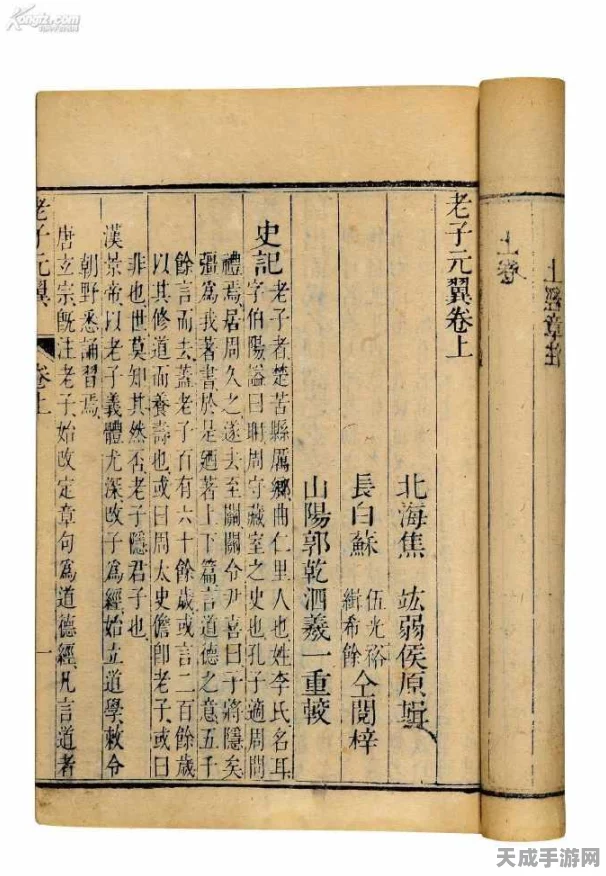 上卷
老子元翼卷上
北海焦 竑弱侯原輯
長白蘇 伍光裕 緝希餘 仝閱梓
山陽郭乾泗羲一重較
史記 老子者楚苦縣厲鄉曲仁里人也姓李氏名耳
字伯陽謚曰耼周守藏室之史也孔子適周問
禮焉居周久之遂去至關關令尹喜曰子將隱矣
彊爲我著書於是廼著上下篇言道德之意五千
餘言而去葢老子百有六十餘歲或言二百餘歲
以其修道而養壽也或曰周太史儋卽老子或曰
非也世莫知其然否老子隱君子也
漢景帝以老子義體尤深改子爲經始立道學敕令
朝野悉誦習焉
唐玄宗旣注老子始改定章句爲道德經凡言道者
老子元翼 卷上 一
Kongfz.com
天成手游网